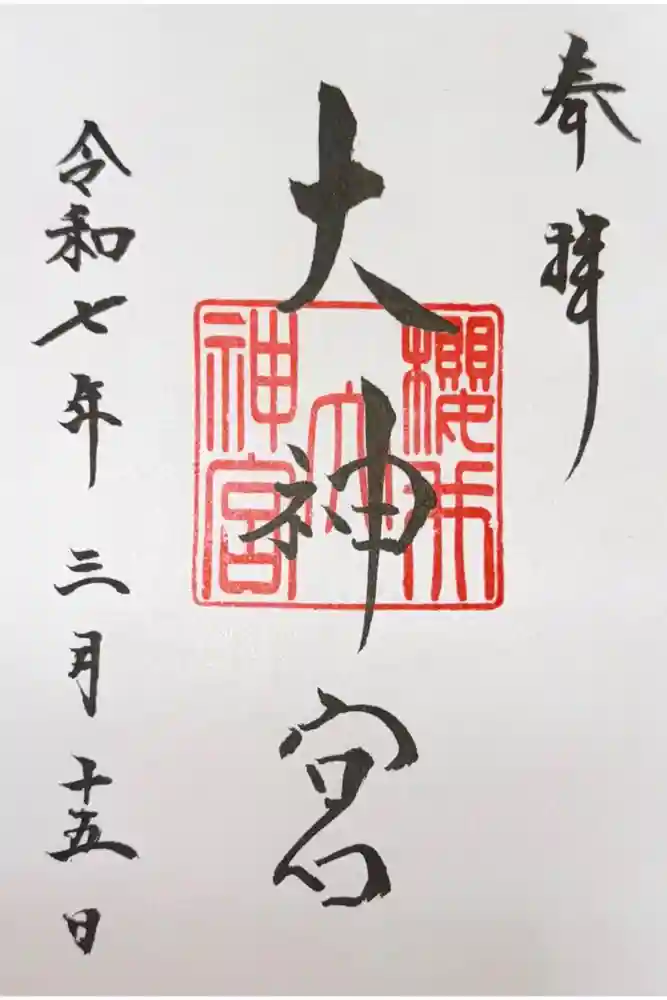 奉拝
大神宮
櫻
大
神宮
令和七年 三月十五日